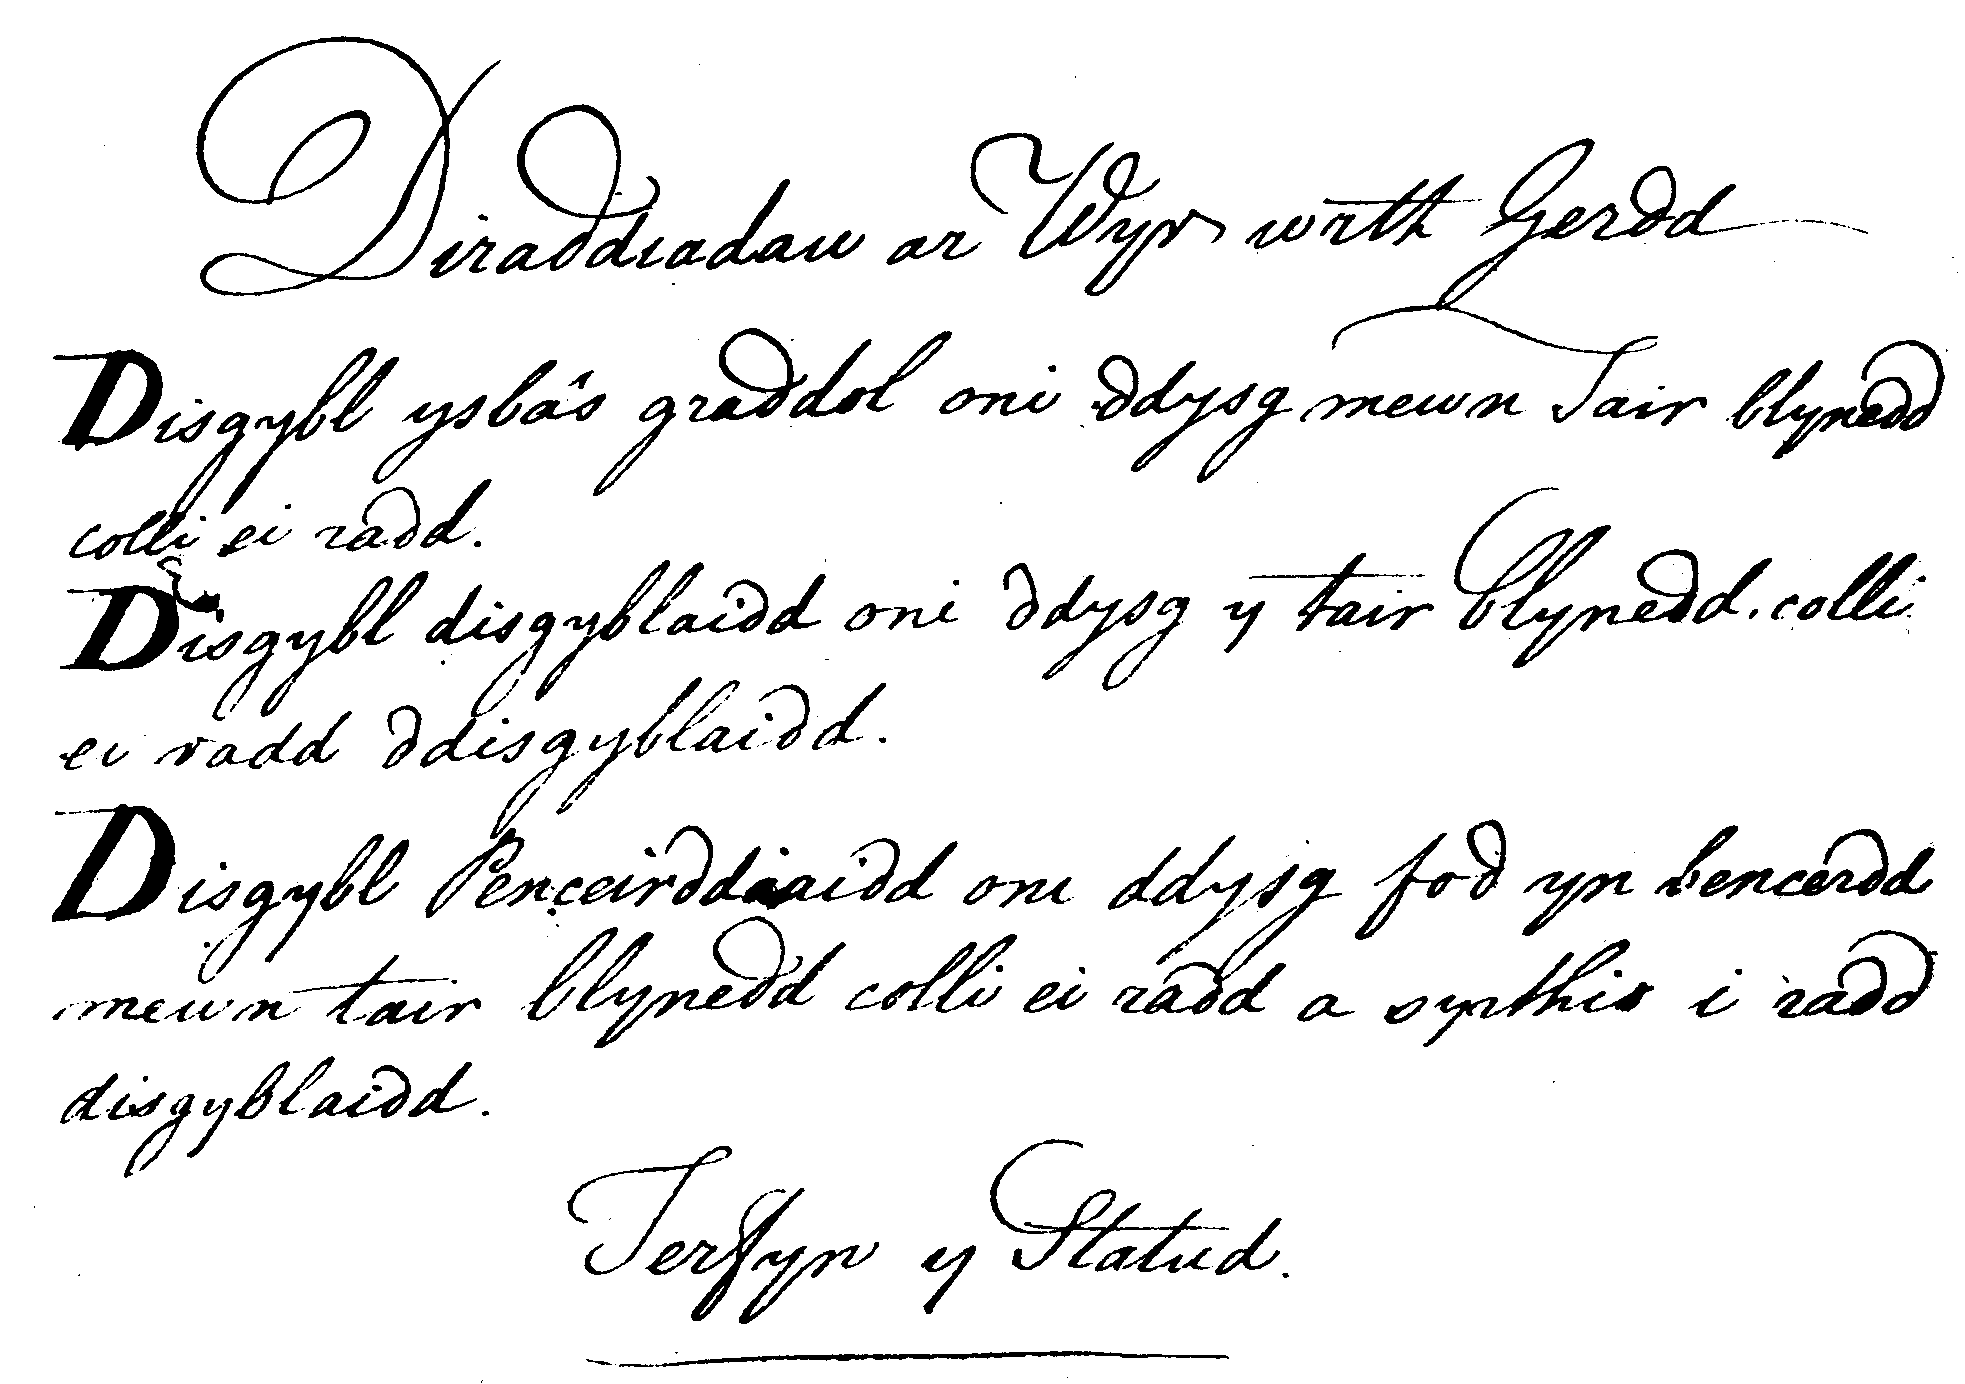 Diraddiadau ar Wyr wrth Gerdd
Disgybl ysbâs graddol oni ddysg mewn Tair blynedd
colli ei radd.
Disgybl disgyblaidd oni ddysg y tair blynedd. colli
ei radd ddisgyblaidd.
Disgybl Penceirddiaidd oni ddysg fod yn bencerdd
mewn tair blynedd colli ei radd a syrthio i radd
disgyblaidd.
Terfyn y Statud.